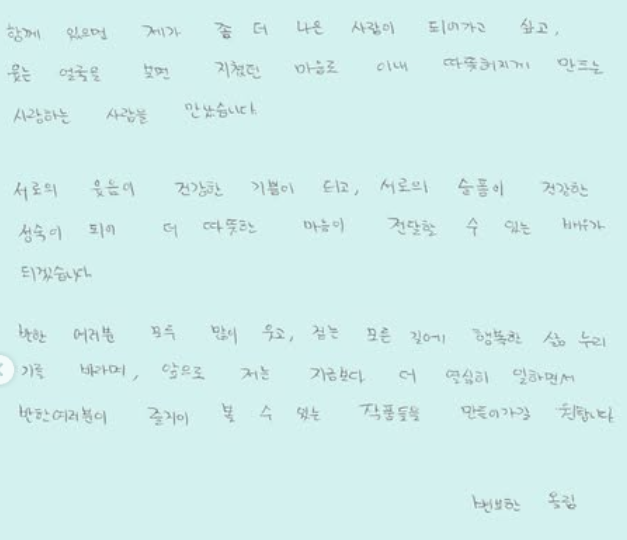 함께 있으면 제가 좀 더 나은 사람이 되어가고 싶고,
웃는 얼굴을 보면 지쳤던 마음도 이내 따뜻해지게 만드는
사랑하는 사람을 만났습니다.
서로의 웃음이 건강한 기쁨이 되고, 서로의 슬픔이 건강한
성숙이 되어 더 따뜻한 마음이 전달할 수 있는 배우가
되겠습니다.
한 여러분 모두 많이 웃고, 걷는 모든 길에 행복한 삶 누리
기를 바라며, 앞으로 저는 지금보다 더 열심히 일하면서
여러분이 즐기이 볼 수 있는 작품들을 만들어가길
변요한 올림